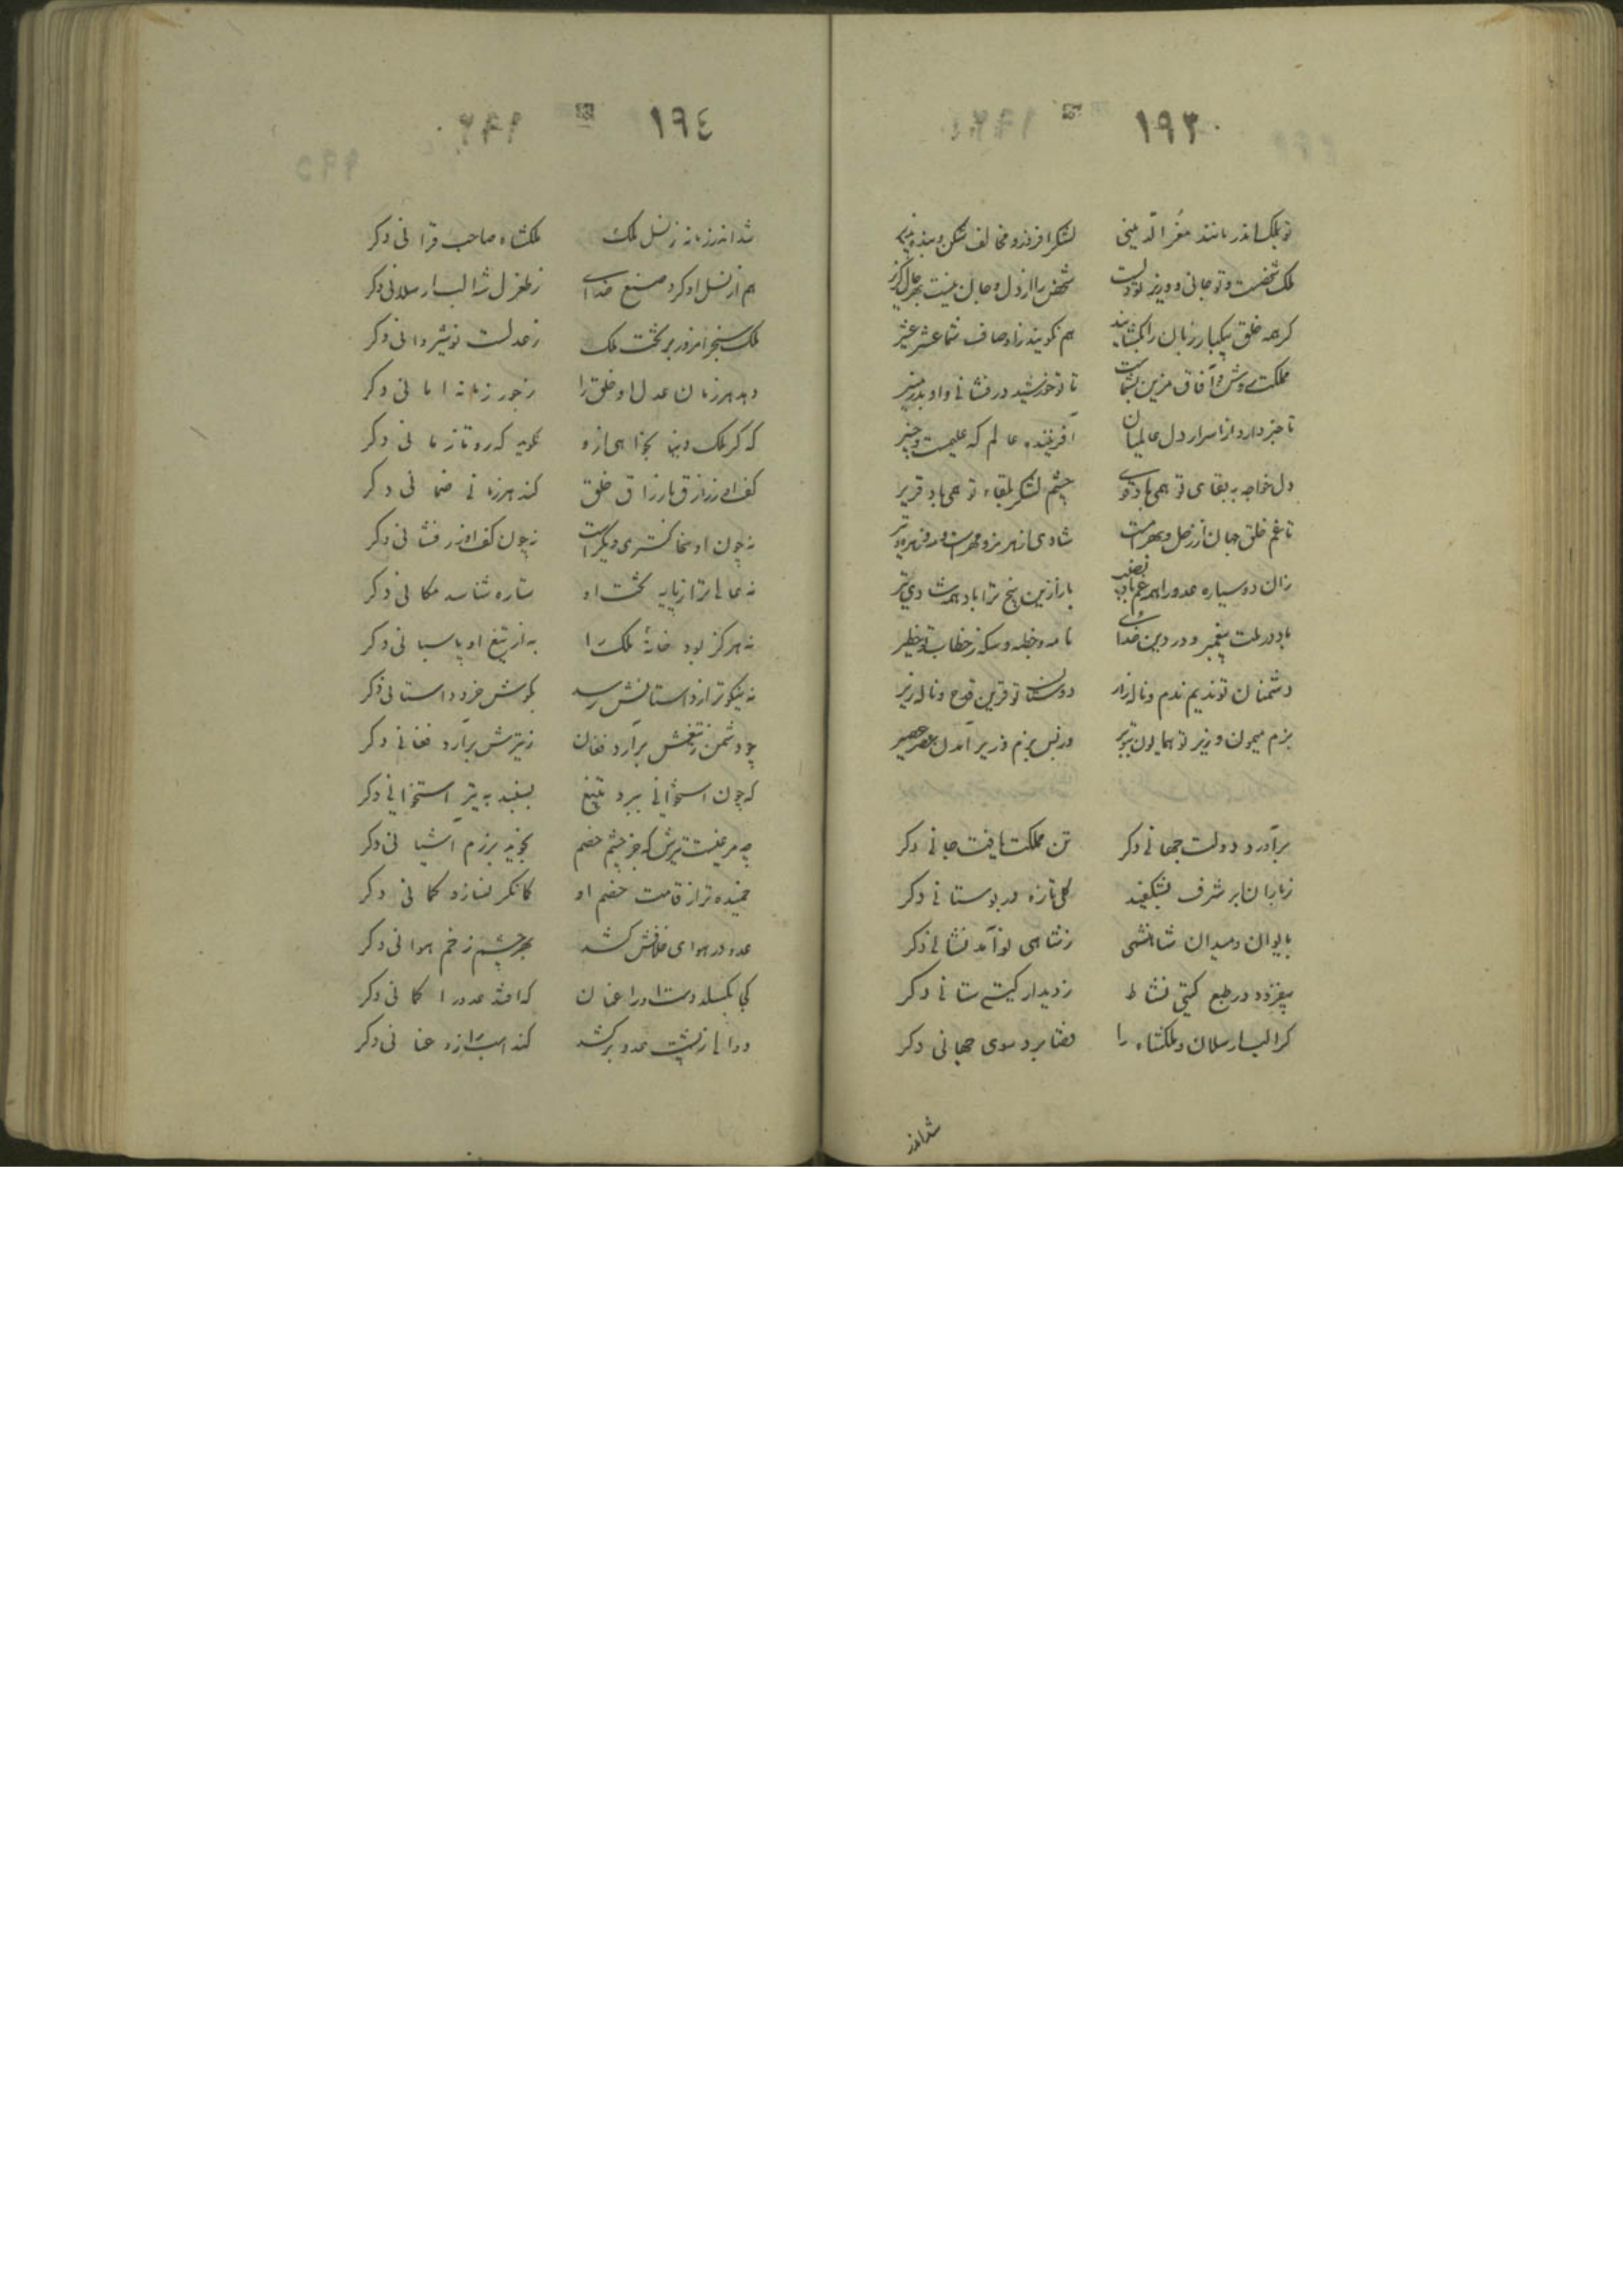 ١٩٣
تو بملک اندر مانند معزّالدینی لشکر افروز و مخالف شکن و بنده پذیر
ملک شخصست و تو جانی و وزیر تو دلست شخص را از دل و جان نیست بهر حال گزیر
گر همه خلق بیکبار زبان را بگشایند هم نگویند ز اوصاف شما عشر عشیر
مملکت روشن و آفاق مزین بشماست تا تو خورشید درفشانی و او بدر منیر
تا خبر دارد از اسرار دل عالمیان آفریننده عالم که علیمست و خبیر
دل خواجه به بقای تو همی باد قوی چشم لشکر بلقاء تو همی باد قریر
تا غم خلق جهان از زحل و بهرامست شادی از هرمز و مهرست و مه و زهره و تیر
زان دو سیاره عدو را همه غم باد نصیب باز ازین پنج ترا باد همه شادی تیر
باد در ملت پیغمبر و در دین خدای نامه و خطبه و سکه ز خطاب تو خطیر
دشمنان تو ندیم ندم و ناله زار دوستان تو قرین قدح و ناله زیر
بزم میمون وزیر تو همایون بتو بر
برآورد دولت جهانی دکر تن مملکت یافت جانی دکر
ز باران ابر شرف بشکفید گلی تازه در بوستانی دکر
بایوان و میدان شاهنشهی ز شاهی نو آمد نشانی دکر
بیفزود در طبع گیتی نشاط ز دیدار گیتی ستانی دکر
گر الب ارسلان و ملکشاه را قضا برد سوی جهانی دکر
شد اندر
١٩٤
شد اندر زمانه ز نسل ملک ملکشاه صاحب قرانی دکر
هم از نسل او کرد صنع خدای ز طغرل شه الب ارسلانی دکر
ملک سنجر امروز بر تخت ملک ز عدلست نوشیروانی دکر
دهد هر زمان عدل او خلق را ز جور زمانه امانی دکر
که گر ملک دنیا بخواهی ازو بگوید که رو تا زمانی دکر
کف او ز رازق بارزاق خلق کند هر زمانی ضمانی دکر
نه چون او سخا گستری دیگر است نه چون کف او زر فشانی دکر
نه عالی تر از پایه تخت او ستاره شناسد مکانی دکر
نه هرگز بود خانهٔ ملک را به از تیغ او پاسبانی دکر
نه نیکوتر از داستانش رسد بگوش خرد داستانی دکر
چو دشمن ز تیغش برآرد فغان ز تیرش برآرد فغانی دکر
که چون استخوانی ببرد بتیغ بسنبد به تیر استخوانی دکر
چه مرغیست تیرش که جز چشم خصم نجوید برزم آشیانی دکر
خمیده تر از قامت خصم او کمانگر نسازد کمانی دکر
عدو در هوای خلافش کشد بهر چشم زخم هوانی دکر
کجا بگسلد دست او را عنان که افتد عدو را گمانی دکر
دوالها ز پشت عدو برکشد کند اسب را زو عنانی دکر